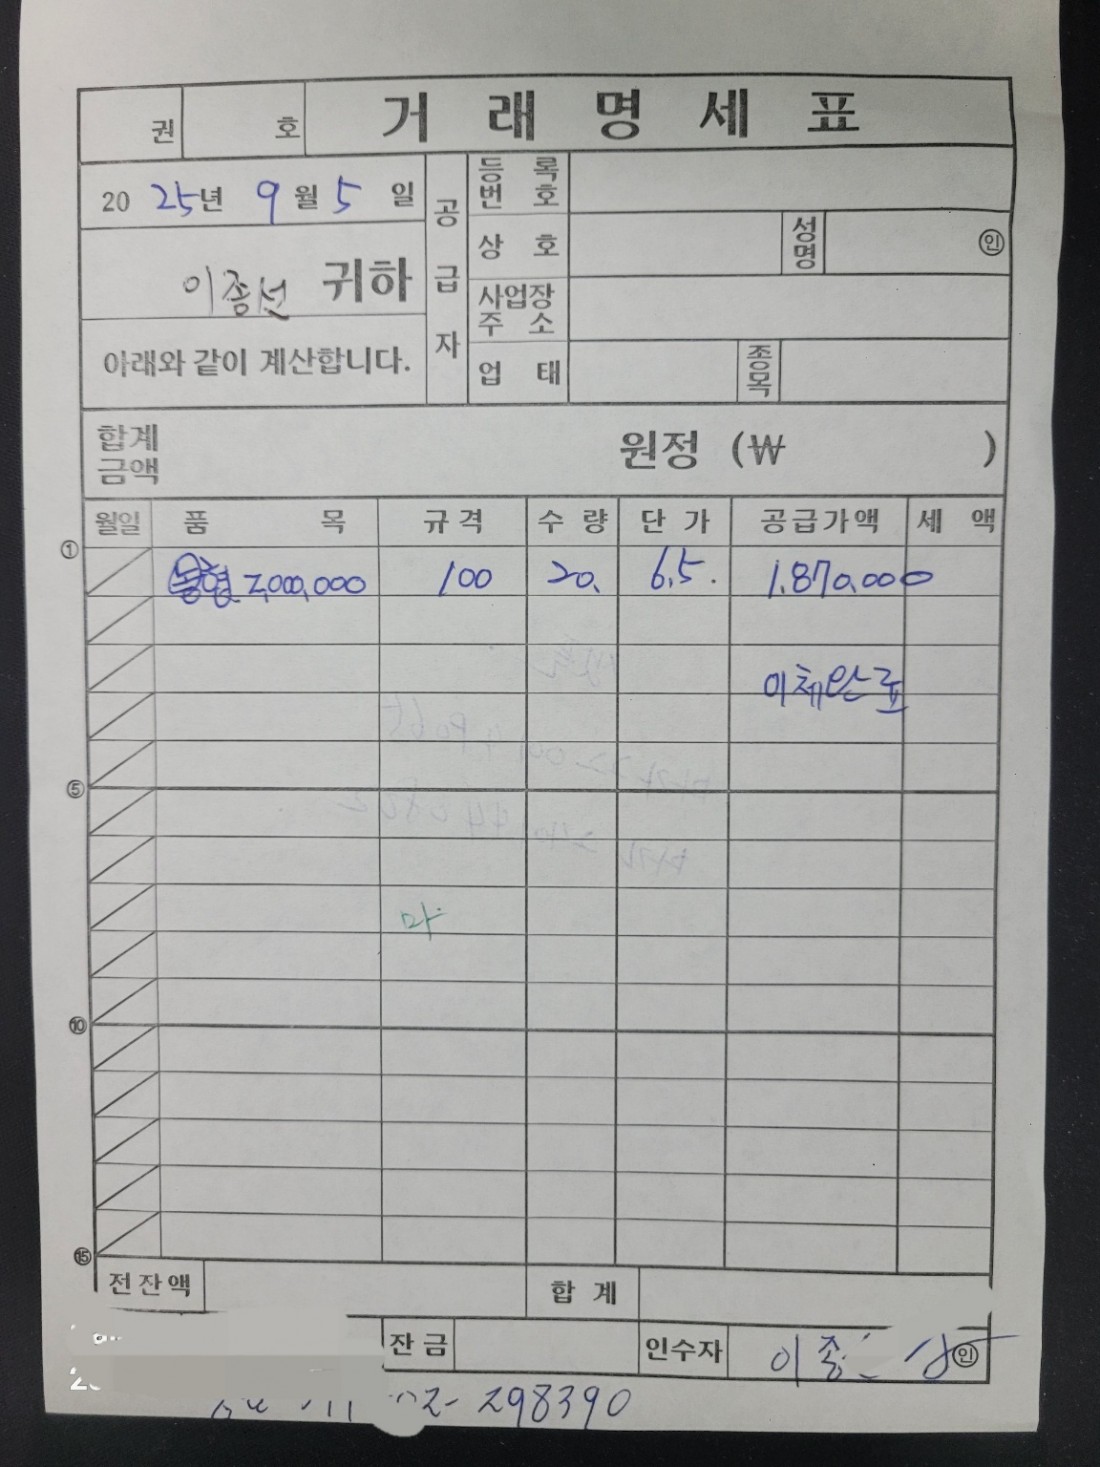 권 호 거 래 명 세 표
20 25년 9월 5 일
이종선 귀하
아래와 같이 계산합니다.
공급자
등록번호
상 호 성명 인
사업장주소
업 태 종목
합계금액 원정 (₩ )
월일 품 목 규격 수량 단가 공급가액 세 액
① 2,000,000 100 20. 6.5. 1.870.000
이체완료
⑤
마
⑩
⑮
전잔액 합 계
잔금 인수자 이종 인
02- 298390